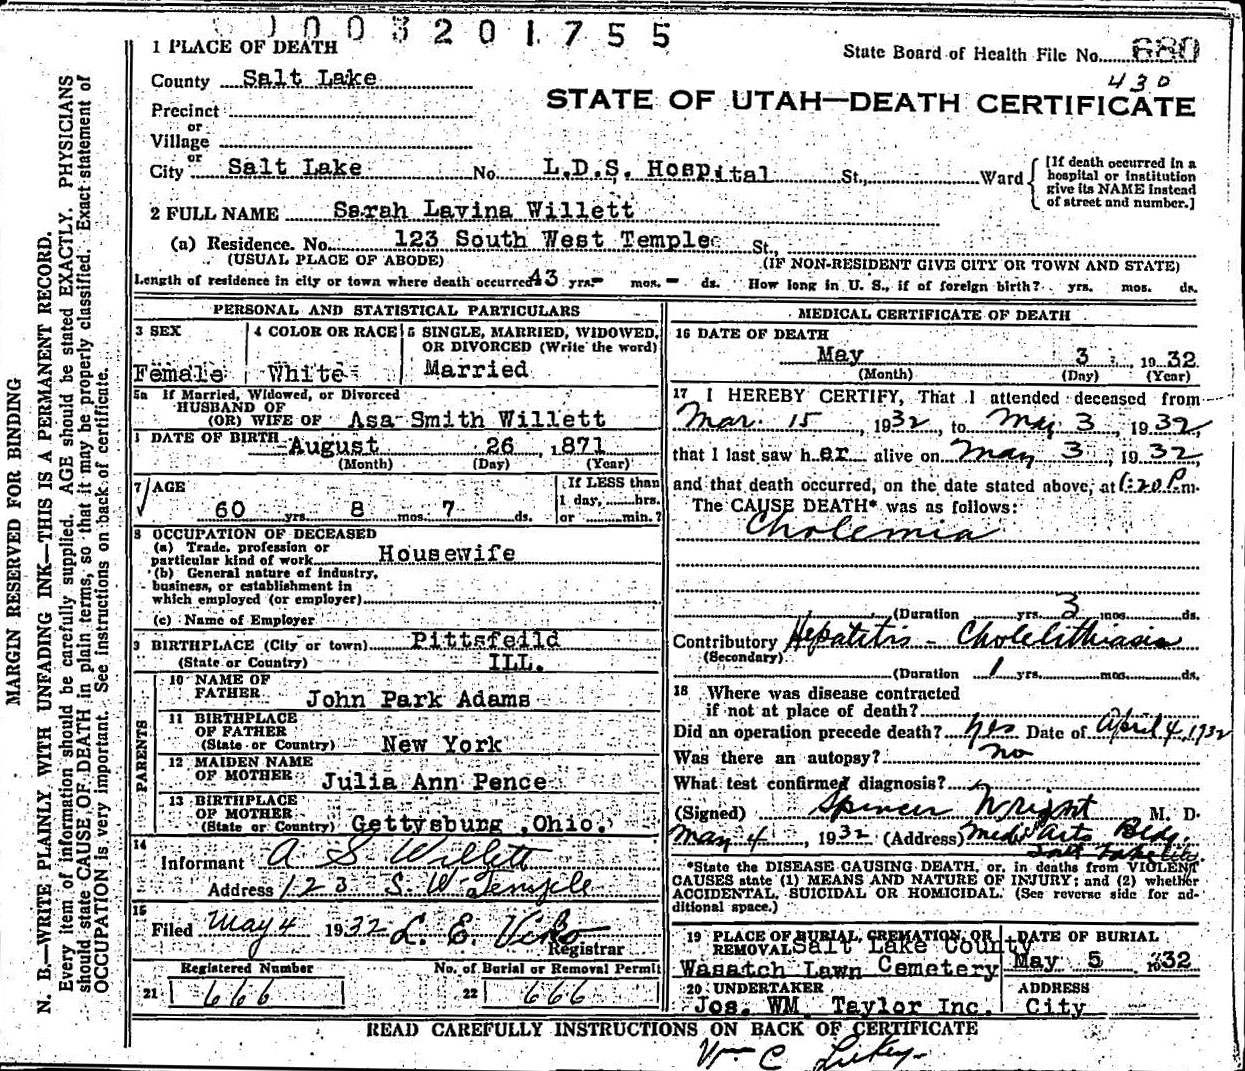 1003201755
State Board of Health File No. 680
430
STATE OF UTAH—DEATH CERTIFICATE
1 PLACE OF DEATH
County Salt Lake
Precinct
or
Village
or
City Salt Lake No. L.D.S. Hospital St., Ward
[If death occurred in a hospital or institution give its NAME instead of street and number.]
2 FULL NAME Sarah Lavina Willett
(a) Residence. No. 123 South West Temple St.,
(USUAL PLACE OF ABODE) (IF NON-RESIDENT GIVE CITY OR TOWN AND STATE)
Length of residence in city or town where death occurred 43 yrs. - mos. - ds. How long in U. S., if of foreign birth? yrs. mos. ds.
PERSONAL AND STATISTICAL PARTICULARS
3 SEX
Female
4 COLOR OR RACE
White
5 SINGLE, MARRIED, WIDOWED,
OR DIVORCED (Write the word)
Married
5a If Married, Widowed, or Divorced
HUSBAND OF
(OR) WIFE OF Asa Smith Willett
DATE OF BIRTH August 26, 1871
(Month) (Day) (Year)
7 AGE
60 yrs. 8 mos. 7 ds.
If LESS than
1 day, hrs.
or min.?
8 OCCUPATION OF DECEASED
(a) Trade, profession or
particular kind of work Housewife
(b) General nature of industry,
business, or establishment in
which employed (or employer)
(c) Name of Employer
9 BIRTHPLACE (City or town) Pittsfeild
(State or Country) ILL.
PARENTS
10 NAME OF
FATHER John Park Adams
11 BIRTHPLACE
OF FATHER
(State or Country) New York
12 MAIDEN NAME
OF MOTHER Julia Ann Pence
13 BIRTHPLACE
OF MOTHER
(State or Country) Gettysburg, Ohio.
14
Informant A S Willett
Address 123 S. W Temple
15
Filed May 4 1932 L. E. Viko
Registrar
Registered Number No. of Burial or Removal Permit
21 666 22 666
MEDICAL CERTIFICATE OF DEATH
16 DATE OF DEATH
May 3 1932
(Month) (Day) (Year)
17 I HEREBY CERTIFY, That I attended deceased from
Mar. 15, 1932, to May 3, 1932,
that I last saw her alive on May 3, 1932,
and that death occurred, on the date stated above, at 1:20 P.m.
The CAUSE DEATH* was as follows:
Cholemia
(Duration yrs. 3 mos. ds.
Contributory Hepatitis - Cholelithiasis
(Secondary)
(Duration 1 yrs. mos. ds.
18 Where was disease contracted
if not at place of death?
Did an operation precede death? yes Date of April 4, 1932
Was there an autopsy? no
What test confirmed diagnosis?
(Signed) Spencer Wright M. D.
May 4, 1932 (Address) Medi Arts Bldg.
Salt Lake City.
*State the DISEASE CAUSING DEATH, or, in deaths from VIOLENT
CAUSES state (1) MEANS AND NATURE OF INJURY; and (2) whether
ACCIDENTAL, SUICIDAL OR HOMICIDAL. (See reverse side for ad-
ditional space.)
19 PLACE OF BURIAL, CREMATION, OR
REMOVAL Salt Lake County
Wasatch Lawn Cemetery
DATE OF BURIAL
May 5 1932
20 UNDERTAKER
Jos. WM. Taylor Inc.
ADDRESS
City
READ CAREFULLY INSTRUCTIONS ON BACK OF CERTIFICATE
Wm C
MARGIN RESERVED FOR BINDING
N. B.—WRITE PLAINLY WITH UNFADING INK—THIS IS A PERMANENT RECORD.
Every item of information should be carefully supplied. AGE should be stated EXACTLY. PHYSICIANS
should state CAUSE OF DEATH in plain terms, so that it may be properly classified. Exact statement of
OCCUPATION is very important. See instructions on back of certificate.